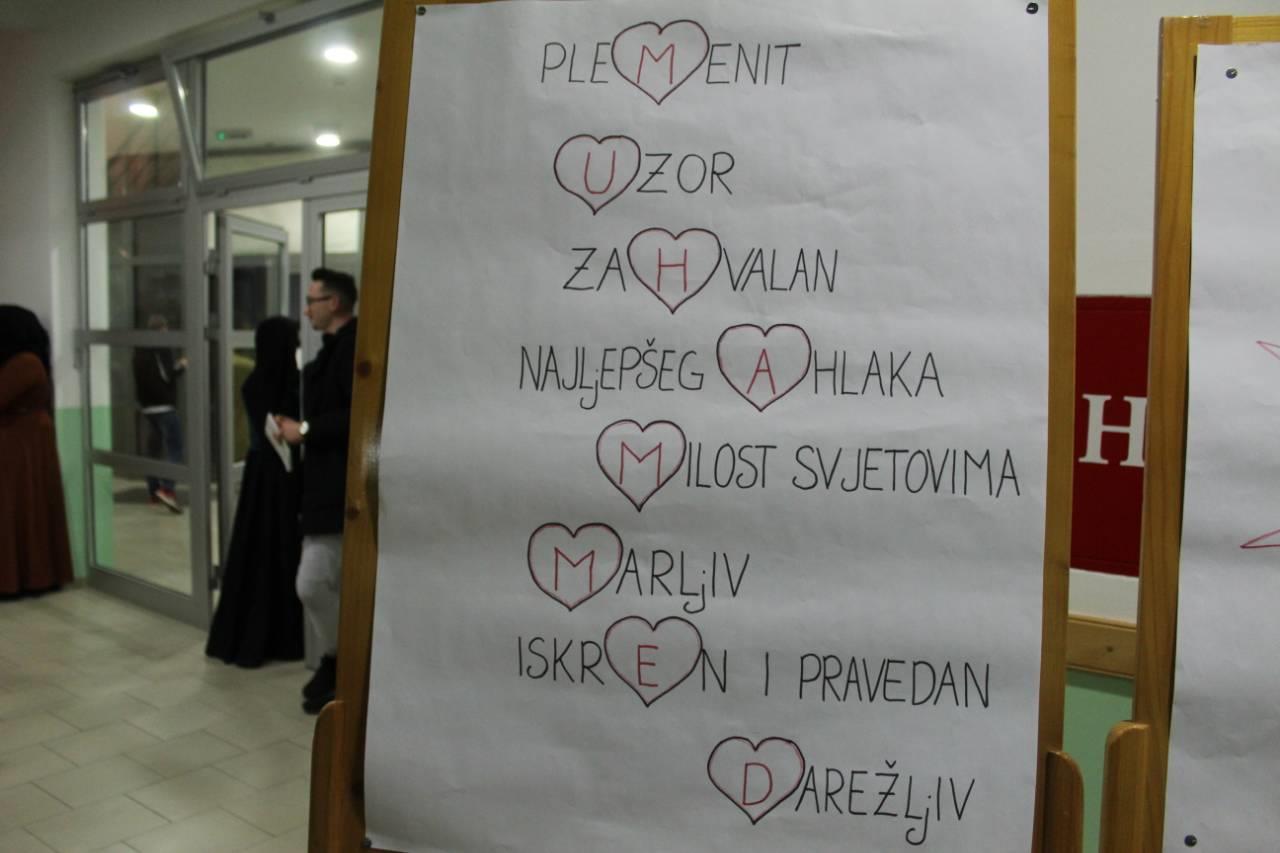 PLEMENIT
UZOR
ZAHVALAN
NAJLjEPŠEG AHLAKA
MILOST SVJETOVIMA
MARLjIV
ISKREN I PRAVEDAN
DAREŽLjIV
H